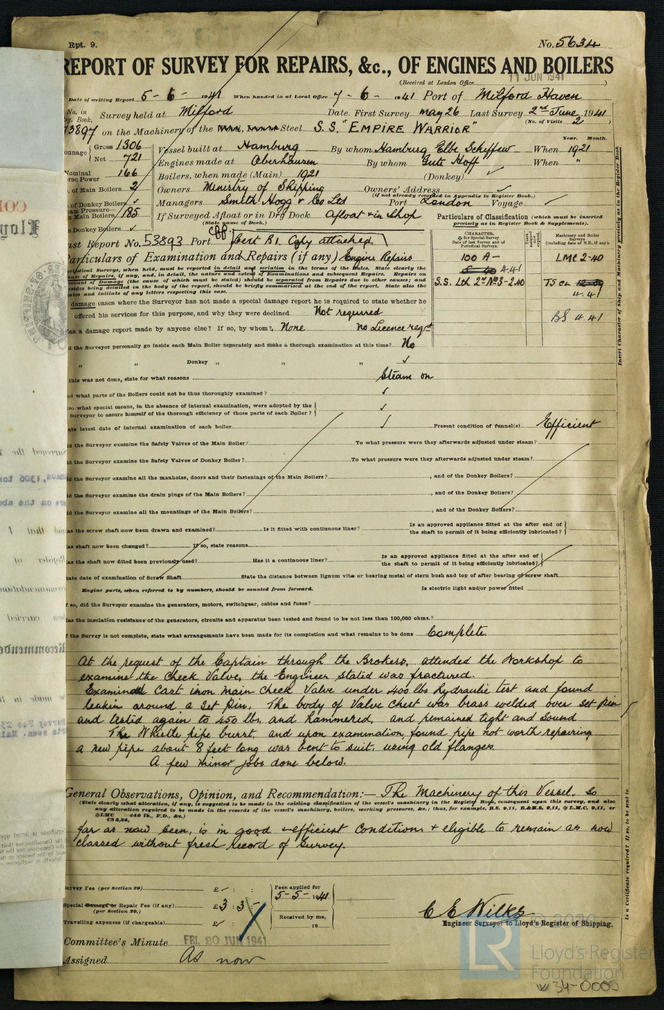 Rpt. 9.
No. 5634
REPORT OF SURVEY FOR REPAIRS, &c., OF ENGINES AND BOILERS
(Received at London Office 11 JUN 1941
Date of writing Report 5-6-1941 When handed in at Local Office 7-6-1941 Port of Milford Haven
No. in Survey held at Milford Date, First Survey May 26 Last Survey 2nd June 1941
Book. (No. of Visits 2
73897 on the Machinery of the Steel S.S. "EMPIRE WARRIOR"
Year. Month.
Gross 1306 Vessel built at Hamburg By whom Hamburg Elbe Schiffsw When 1921
Net 721 Engines made at Oberhausen By whom Gute Hoff When "
Nominal 166 Boilers, when made (Main) 1921 (Donkey) ✓
of Main Boilers 2 Owners Ministry of Shipping Owners' Address ✓
(if not already recorded in Appendix to Register Book.)
of Donkey Boilers ✓ Managers Smith Hogg & Co Ltd Port London Voyage ✓
Main Boilers 185 If Surveyed Afloat or in Dry Dock Afloat & in shop
(State name of Dock.)
Donkey Boilers ✓
Particulars of Classification (which must be inserted precisely as in Register Book & Supplements).
Last Report No. 53893 Port Cert B1. Copy attached
Particulars of Examination and Repairs (if any) Engine Repairs
100 A- 4.41
S.S. Ltd 2nd No 3-2.40
LMC 2-40
TS CL 4.41
BS 4.41
damage cases where the Surveyor has not made a special damage report he is required to state whether he
offered his services for this purpose, and why they were declined Not required
Was a damage report made by anyone else? If so, by whom, None no Licence reqd
Did the Surveyor personally go inside each Main Boiler separately and make a thorough examination at this time? No
" " Donkey " " " ✓
If this was not done, state for what reasons Steam on
And what parts of the Boilers could not be thus thoroughly examined? ✓
Also what special means, in the absence of internal examination, were adopted by the
Surveyor to assure himself of the thorough efficiency of those parts of each Boiler? ✓
State latest date of internal examination of each boiler ✓ Present condition of funnel(s) Efficient
Did the Surveyor examine the Safety Valves of the Main Boiler? To what pressure were they afterwards adjusted under steam?
Did the Surveyor examine the Safety Valves of Donkey Boiler? To what pressure were they afterwards adjusted under steam?
Did the Surveyor examine all the manholes, doors and their fastenings of the Main Boilers? , and of the Donkey Boilers?
Did the Surveyor examine the drain plugs of the Main Boilers? , and of the Donkey Boilers?
Did the Surveyor examine all the mountings of the Main Boilers? , and of the Donkey Boilers?
Has the screw shaft now been drawn and examined? Is it fitted with continuous liner? Is an approved appliance fitted at the after end of the shaft to permit of it being efficiently lubricated?
Has shaft now been changed? If so, state reasons
Has the shaft now fitted been previously used? Has it a continuous liner? Is an approved appliance fitted at the after end of the shaft to permit of it being efficiently lubricated?
State date of examination of Screw Shaft State the distance between lignum vitæ or bearing metal of stern bush and top of after bearing of screw shaft
Engine parts, when referred to by numbers, should be counted from forward. Is electric light and/or power fitted
If so, did the Surveyor examine the generators, motors, switchgear, cables and fuses?
Has the insulation resistance of the generators, circuits and apparatus been tested and found to be not less than 100,000 ohms?
If the Survey is not complete, state what arrangements have been made for its completion and what remains to be done Complete.
At the request of the Captain through the Brokers, attended the Workshop to
examine the Check Valve, the Engineer stated was fractured.
Examined Cast iron main Check Valve under 400 lbs hydraulic test and found
leakin around a Set Pin. The body of Valve Chest was brass welded over Set Pin
and tested again to 450 lbs, and hammered, and remained tight and sound
The Whistle pipe burst, and upon examination, found pipe not worth repairing
a new pipe about 8 feet long was bent to suit, using old flanges.
A few minor jobs done below.
General Observations, Opinion, and Recommendation:— The Machinery of this Vessel, so
(State clearly what alteration, if any, is suggested to be made in the existing classification of the vessel's machinery in the Register Book, consequent upon this survey, and also
any alteration required to be made in the records of the vessel's machinery, boilers, working pressures, &c.; thus, for example, B.S. 9,11, B.&M.S. 9,11, or L.M.C. 9,11, or
far as now seen, is in good & efficient Condition & eligible to remain as now
classed without fresh Record of Survey.
Survey Fee (per Section 29) £ : :
Special Repair Fee (if any) (per Section 29.) £3 : 3 : -
Travelling expenses (if chargeable) £ ✓ :
Fees applied for 5-5-1941
Received by me, 19
C E Wilks
Engineer Surveyor to Lloyd's Register of Shipping.
Committee's Minute FRI. 20 JUN 1941
Assigned As now
Lloyd's Register
Foundation
W34-0003